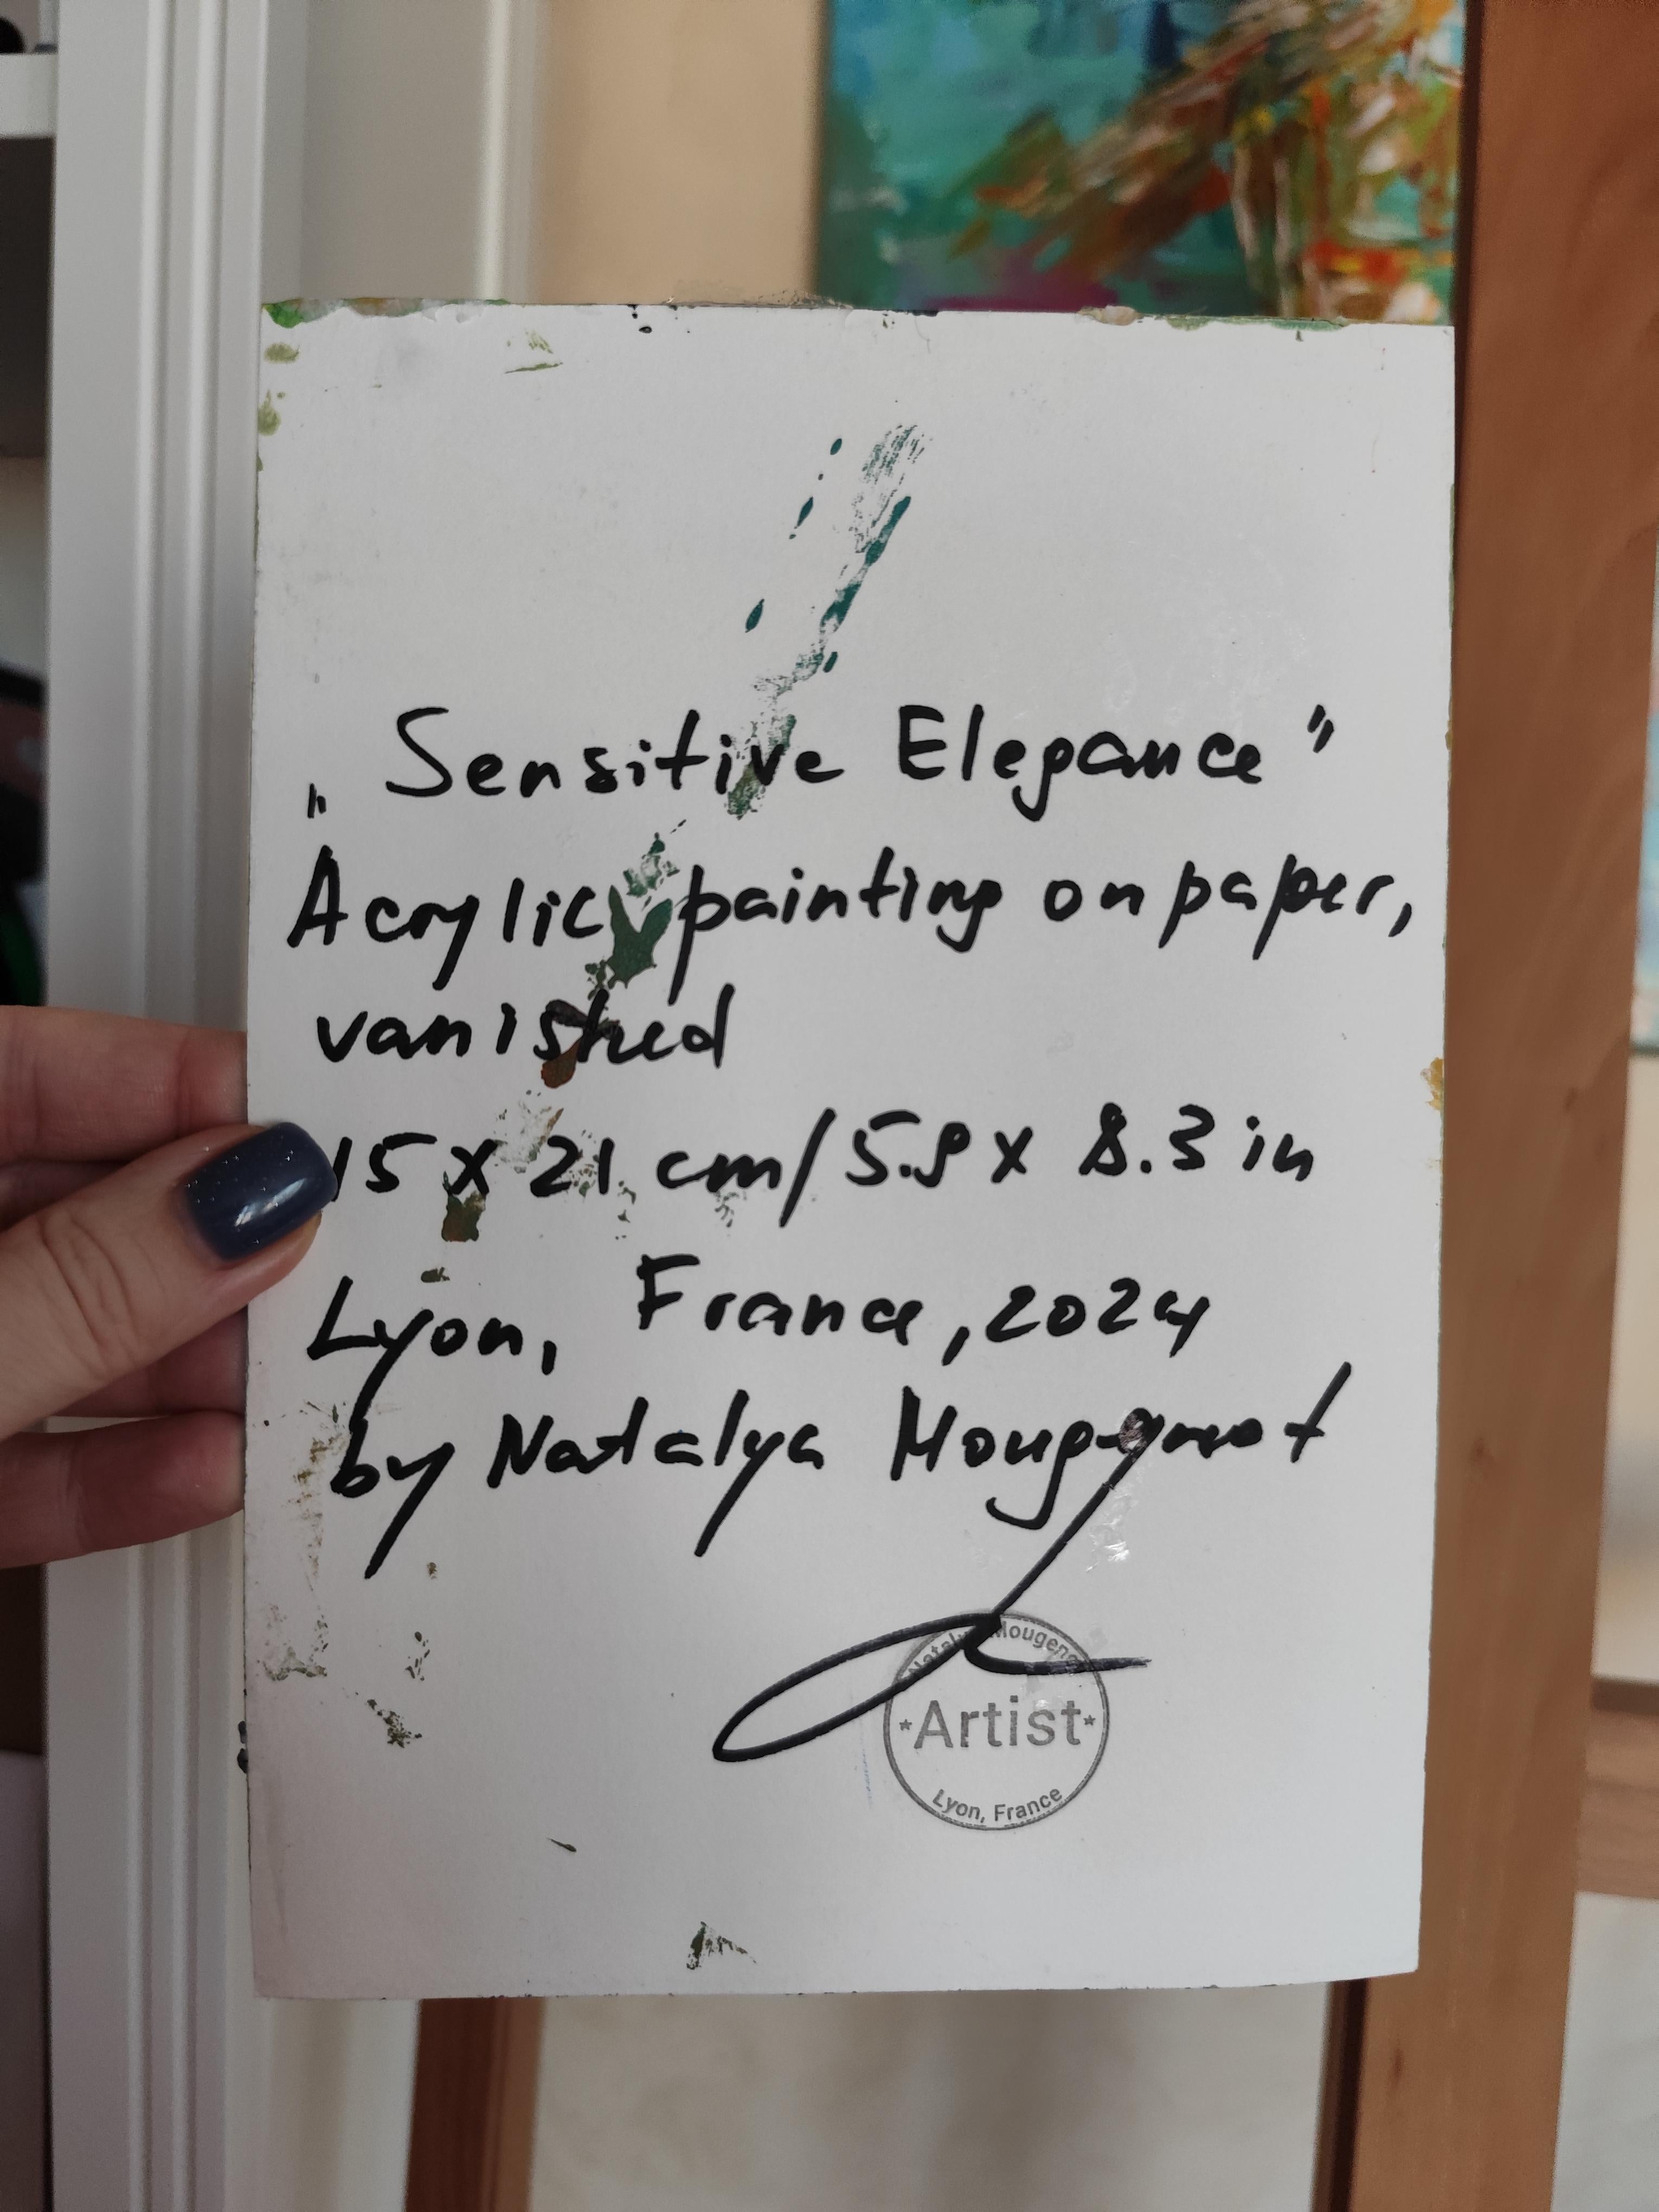 „Sensitive Elegance"
Acrylic painting on paper,
vanished
15 x 21 cm/5.9 x 8.3 in
Lyon, France, 2024
by Natalya Mougenot
Natalya Mougenot
·★Artist★·
Lyon, France